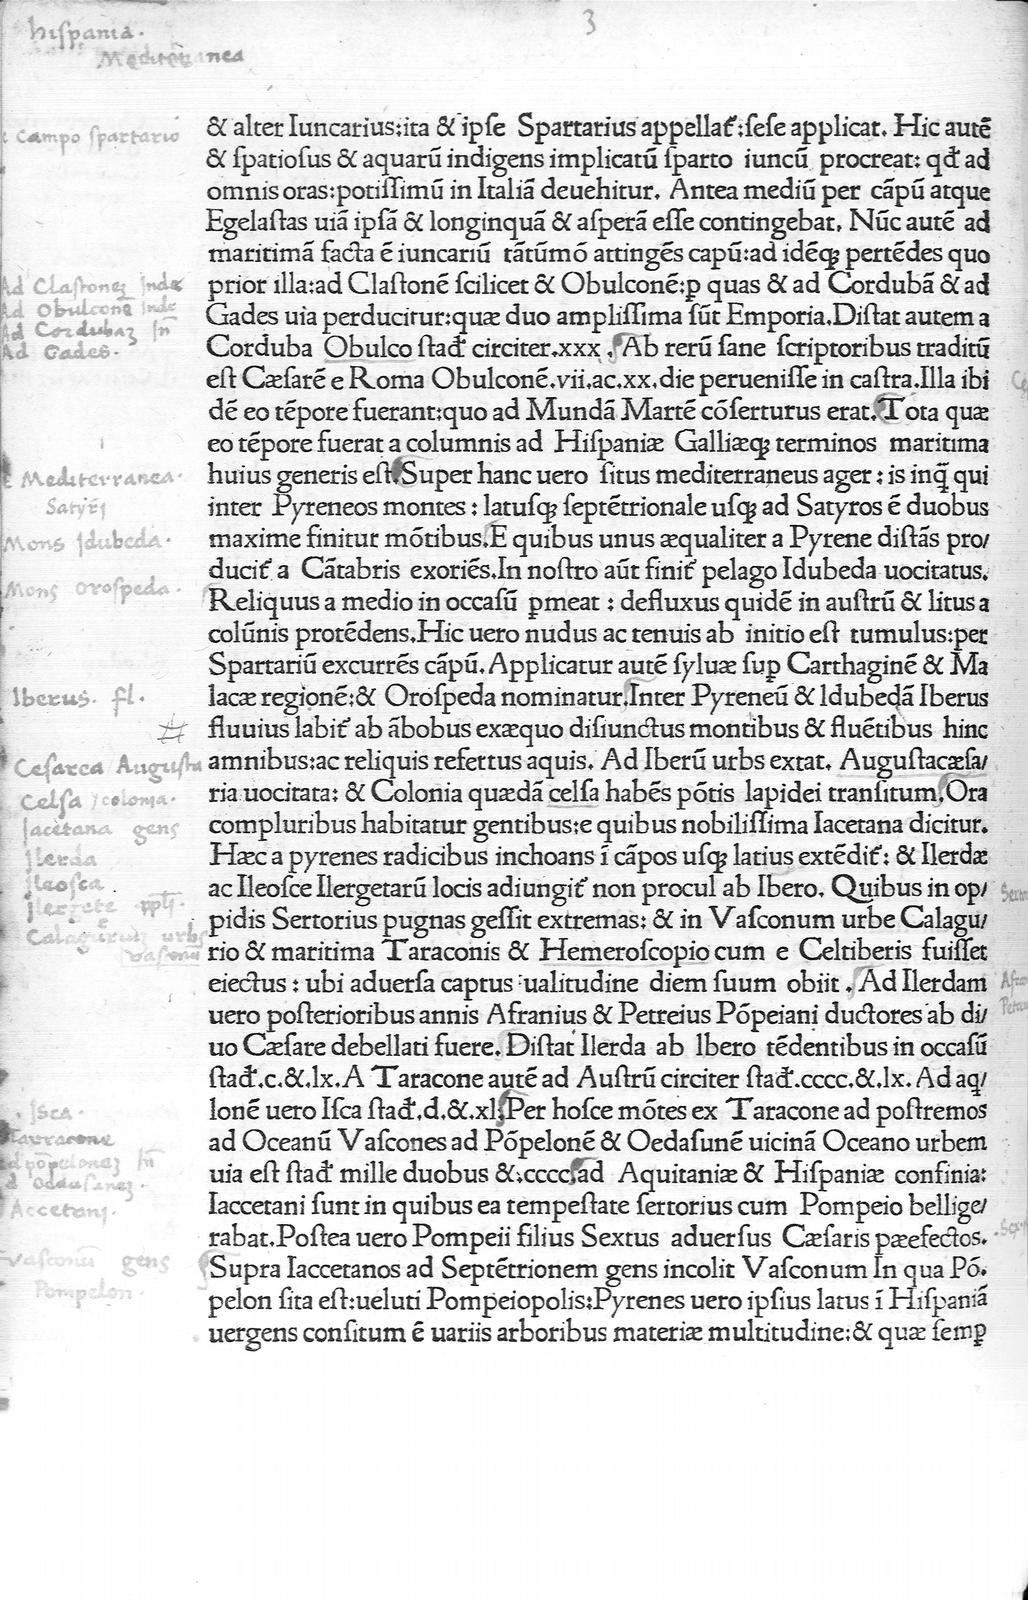 3
hiſpania.
Mediterranea
& alter Iuncarius:ita & ipſe Spartarius appellat᷑:ſeſe applicat. Hic autē
campo ſpartario
& ſpatioſus & aquarū indigens implicatū ſparto iuncū procreat: qđ ad
omnis oras:potiſſimū in Italiā deuehitur. Antea mediū per cāpū atque
Egelaſtas uiā ipſā & longinquā & aſperā eſſe contingebat. Nūc autē ad
maritimā facta ē iuncariū tātūmō attingēs capū:ad idēqꝫ pertēdes quo
Ad Claſtoneꝫ
prior illa:ad Claſtonē ſcilicet & Obulconē:ꝑ quas & ad Cordubā & ad
Ad Obulconē
Gades uia perducitur:quæ duo ampliſſima ſūt Emporia.Diſtat autem a
Ad Cordubaꝫ
Ad Gades.
Corduba Obulco ſtađ circiter.xxx. Ab rerū ſane ſcriptoribus traditū
eſt Cæſarē e Roma Obulconē.vii.ac.xx.die perueniſſe in caſtra.Illa ibi
dē eo tēpore fuerant:quo ad Mundā Martē cōſerturus erat. Tota quæ
eo tēpore fuerat a columnis ad Hiſpaniæ Galliæqꝫ terminos maritima
Mediterranea.
huius generis eſt.Super hanc uero ſitus mediterraneus ager: is inq̄ qui
Satyrj
inter Pyreneos montes: latuſqꝫ ſeptētrionale uſqꝫ ad Satyros ē duobus
Mons Idubeda.
maxime finitur mōtibus.E quibus unus æqualiter a Pyrene diſtās pro/
ducit᷑ a Cātabris exoriēs.In noſtro aūt finit᷑ pelago Idubeda uocitatus.
Mons oroſpeda.
Reliquus a medio in occaſū ꝑmeat: defluxus quidē in auſtrū & litus a
colūnis protēdens.Hic uero nudus ac tenuis ab initio eſt tumulus:per
Spartariū excurrēs cāpū.Applicatur autē ſyluæ ſuꝑ Carthaginē & Ma
Iberus. fl.
lacæ regionē:& Oroſpeda nominatur.Inter Pyreneū & Idubedā Iberus
fluuius labit᷑ ab ābobus exæquo diſiunctus montibus & fluētibus hinc
Ceſarea Auguſta
amnibus:ac reliquis refertus aquis. Ad Iberū urbs extat. Auguſtacæſa/
Celſa /colonia.
ria uocitata: & Colonia quædā celſa habēs pōtis lapidei tranſitum.Ora
Iacetana gens
compluribus habitatur gentibus:e quibus nobiliſſima Iacetana dicitur.
Ilerda
Hæc a pyrenes radicibus inchoans ī cāpos uſqꝫ latius extēdit᷑: & Ilerdæ
Ileoſca
ac Ileoſce Ilergetarū locis adiungit᷑ non procul ab Ibero. Quibus in op/
Ilergete
pidis Sertorius pugnas geſſit extremas: & in Vaſconum urbe Calagu/
urbs
rio & maritima Taraconis & Hemeroſcopio cum e Celtiberis fuiſſet
eiectus: ubi aduerſa captus ualitudine diem ſuum obiit. Ad Ilerdam
uero poſterioribus annis Afranius & Petreius Pōpeiani ductores ab di/
uo Cæſare debellati fuere. Diſtat Ilerda ab Ibero tēdentibus in occaſū
ſtađ.c.&.lx.A Taracone autē ad Auſtrū circiter ſtađ.cccc.&.lx. Ad aq̄/
Iſca.
lonē uero Iſca ſtađ.d.&.xl.Per hoſce mōtes ex Taracone ad poſtremos
Tarracone
ad Oceanū Vaſcones ad Pōpelonē & Oedaſunē uicinā Oceano urbem
uia eſt ſtađ mille duobus &.cccc.ad Aquitaniæ & Hiſpaniæ confinia:
Accetanj.
Iaccetani ſunt in quibus ea tempeſtate ſertorius cum Pompeio bellige/
rabat.Poſtea uero Pompeii filius Sextus aduerſus Cæſaris pæefectos.
Vaſconū gens
Supra Iaccetanos ad Septētrionem gens incolit Vaſconum In qua Pō.
Pompelon.
pelon ſita eſt:ueluti Pompeiopolis:Pyrenes uero ipſius latus ī Hiſpaniā
uergens conſitum ē uariis arboribus materiæ multitudine:& quæ ſemꝑ